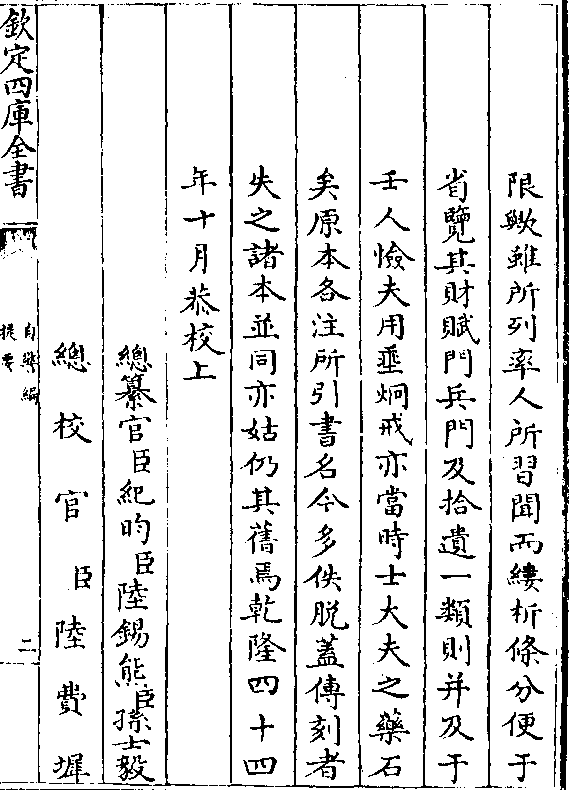 限歟雖所列率人所習聞而縷析條分便于
省覽其財賦門兵門及拾遺一類則并及于
壬人憸夫用垂炯戒亦當時士大夫之藥石
矣原本各注所引書名今多佚脱蓋傳刻者
失之諸本並同亦姑仍其舊焉乾隆四十四
年十月恭校上
總纂官臣紀昀臣陸錫熊臣孫士毅
總校官臣陸費墀
欽定四庫全書
自警編
提要
二